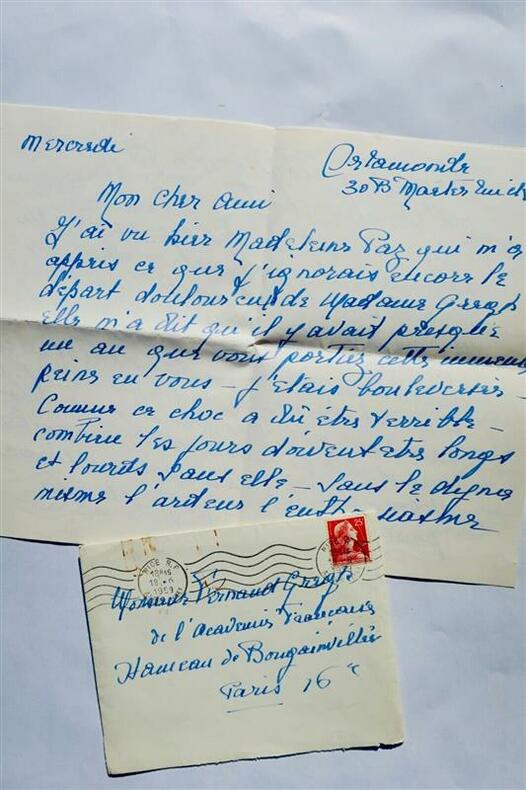 mercredi
Orlamonde
30 B
Mon cher ami
J'ai vu hier Madeleine Paz qui m'a
appris ce que j'ignorais encore le
départ douloureux de Madame Gregh
elle m'a dit qu'il y avait presque
un an que vous portiez cette immense
peine en vous – j'étais bouleversée –
Comme ce choc a dû être terrible –
combien les jours doivent être longs
et lourds sans elle – sans le digne
même l'ardeur l'enthousiasme
NICE R.P.
18-6
1959
25
Monsieur Fernand Gregh
de l'Académie Française
Hameau de Boulainvilliers
Paris 16e